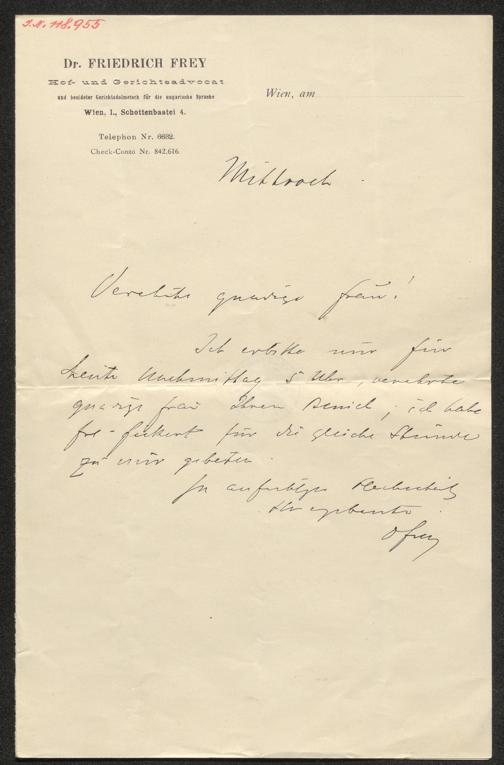 I.N. 118.955
Dr. FRIEDRICH FREY
Hof- und Gerichtsadvocat
und beeideter Gerichtsdolmetsch für die ungarische Sprache
Wien, I., Schottenbastei 4.
Telephon Nr. 6632.
Check-Conto Nr. 842.616.
Wien, am
Mittwoch
Verehrte gnädige Frau!
Ich erbitte mir für
heute Nachmittag 5 Uhr, verehrte
gnädige Frau Ihren Besuch; ich habe
für die gleiche Stunde
zu mir gebeten.
In aufrichtiger Hochachtung
Ihr ergebenster
DFrey